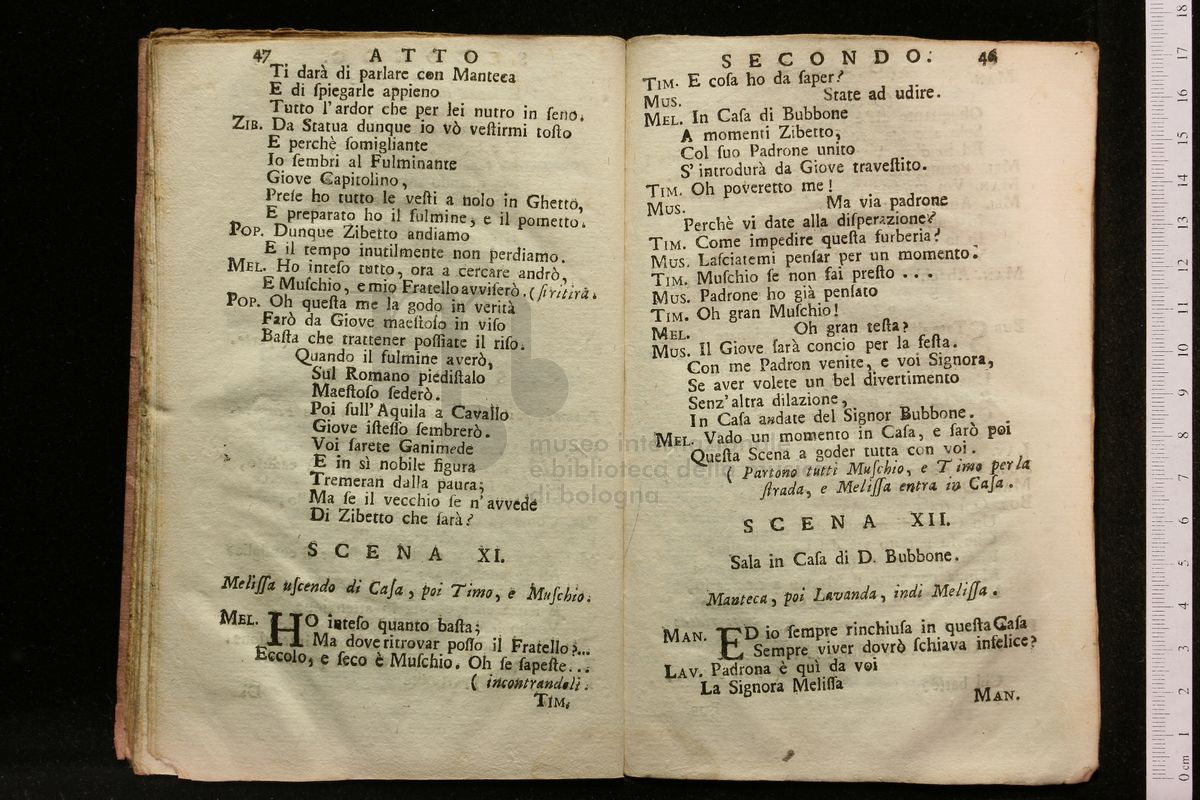 47 ATTO
Ti darà di parlare con Manteca
E di ſpiegarle appieno
Tutto l'ardor che per lei nutro in ſeno.
ZIB. Da Statua dunque io vò veſtirmi toſto
E perchè ſomigliante
Io ſembri al Fulminante
Giove Capitolino,
Preſe ho tutto le veſti a nolo in Ghetto,
E preparato ho il fulmine, e il pometto.
POP. Dunque Zibetto andiamo
E il tempo inutilmente non perdiamo.
MEL. Ho inteſo tutto, ora a cercare andrò,
E Muſchio, e mio Fratello avviſerò. (ſi ritira.
POP. Oh queſta me la godo in verità
Farò da Giove maeſtoſo in viſo
Baſta che trattener poſſiate il riſo.
Quando il fulmine averò,
Sul Romano piediſtalo
Maeſtoſo ſederò.
Poi ſull'Aquila a Cavallo
Giove iſteſſo ſembrerò.
Voi ſarete Ganimede
E in sì nobile figura
Tremeran dalla paura;
Ma ſe il vecchio ſe n'avvede
Di Zibetto che ſarà?
SCENA XI.
Meliſſa uſcendo di Caſa, poi Timo, e Muſchio.
MEL. HO inteſo quanto baſta;
Ma dove ritrovar poſſo il Fratello?...
Eccolo, e ſeco è Muſchio. Oh ſe ſapeſte...
( incontrandoli.
TIM.
SECONDO. 46
TIM. E coſa ho da ſaper?
MUS. State ad udire.
MEL. In Caſa di Bubbone
A momenti Zibetto,
Col ſuo Padrone unito
S'introdurà da Giove traveſtito.
TIM. Oh poveretto me!
MUS. Ma via padrone
Perchè vi date alla diſperazione?
TIM. Come impedire queſta furberia?
MUS. Laſciatemi penſar per un momento.
TIM. Muſchio ſe non fai preſto . . .
MUS. Padrone ho già penſato
TIM. Oh gran Muſchio!
MEL. Oh gran teſta?
MUS. Il Giove ſarà concio per la feſta.
Con me Padron venite, e voi Signora,
Se aver volete un bel divertimento
Senz'altra dilazione,
In Caſa andate del Signor Bubbone.
MEL. Vado un momento in Caſa, e ſarò poi
Queſta Scena a goder tutta con voi.
( Partono tutti Muſchio, e Timo per la
ſtrada, e Meliſſa entra in Caſa.
SCENA XII.
Sala in Caſa di D. Bubbone.
Manteca, poi Lavanda, indi Meliſſa.
MAN. ED io ſempre rinchiuſa in queſta Caſa
Sempre viver dovrò ſchiava infelice?
LAV. Padrona è quì da voi
La Signora Meliſſa
MAN.
museo internazionale
e biblioteca della
di bologna
0 cm 1 2 3 4 5 6 7 8 9 10 11 12 13 14 15 16 17 18